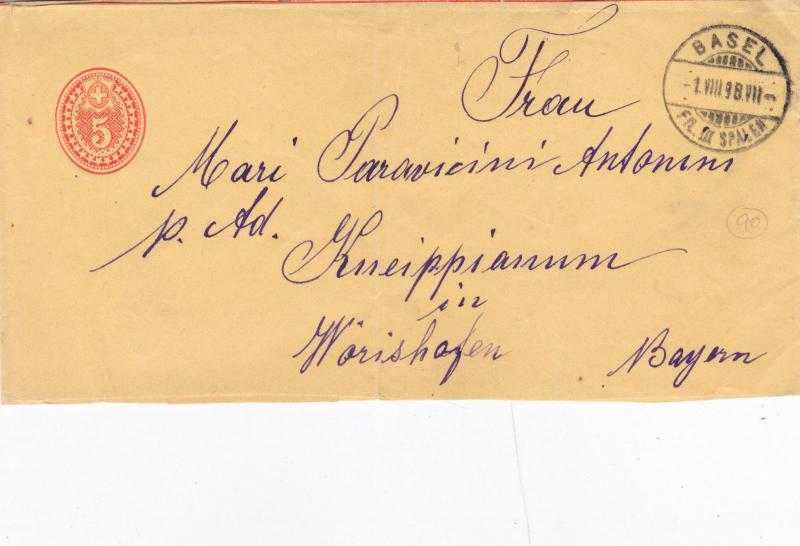 5
BASEL
-1.VIII 98.VII-
FIL. III SPALEN
Frau
Mari Paravicini Antonini
p. Ad.
Kneippianum
in
Wörishofen Bayern
90